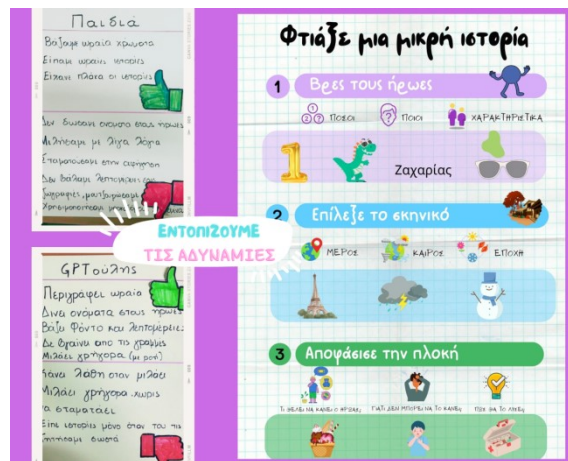 Παιδιά
Βάζαμε ωραία χρώματα
Είπαμε ωραίες ιστορίες
Είχαν πλάκα οι ιστορίες
Δεν δώσαμε ονόματα στους ήρωες
Μιλήσαμε με λίγα λόγια
Σταματούσαμε στην αφήγηση
Δεν βάλαμε λεπτομέρειες
ΕΝΤΟΠΙΖΟΥΜΕ
ΤΙΣ ΑΔΥΝΑΜΙΕΣ
GPTούλης
Περιγράφει ωραία
Δίνει ονόματα στους ήρωες
Βάζει φόντο και λεπτομέρειες
Δε βγαίνει απο τις γραμμές
Μιλάει γρήγορα (με ροή)
Κάνει λάθη όταν μιλάει
Μιλάει γρήγορα χωρίς
να σταματάει
Είπε ιστορίες μόνο όταν του τις
ζητήσαμε σωστά
Φτιάξε μια μικρή ιστορία
1 Βρες τους ήρωες
ΠΟΣΟΙ ΠΟΙΟΙ ΧΑΡΑΚΤΗΡΙΣΤΙΚΑ
1 Ζαχαρίας
2 Επίλεξε το σκηνικό
ΜΕΡΟΣ ΚΑΙΡΟΣ ΕΠΟΧΗ
3 Αποφάσισε την πλοκή
ΤΙ ΘΕΛΕΙ ΝΑ ΚΑΝΕΙ Ο ΗΡΩΑΣ; ΓΙΑΤΙ ΔΕΝ ΜΠΟΡΕΙ ΝΑ ΤΟ ΚΑΝΕΙ; ΠΩΣ ΘΑ ΤΟ ΛΥΣΕΙ;